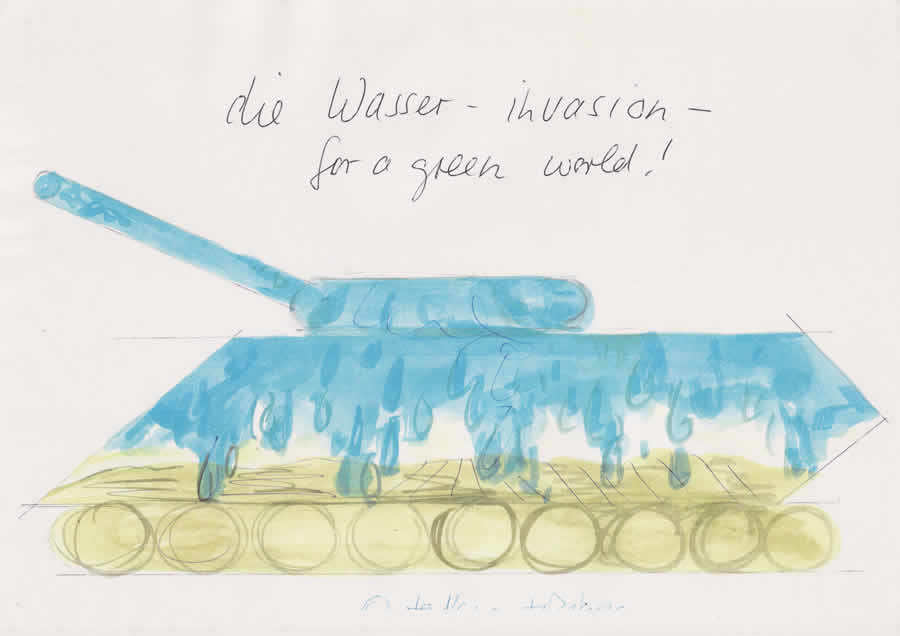 die Wasser - invasion -
for a green world!